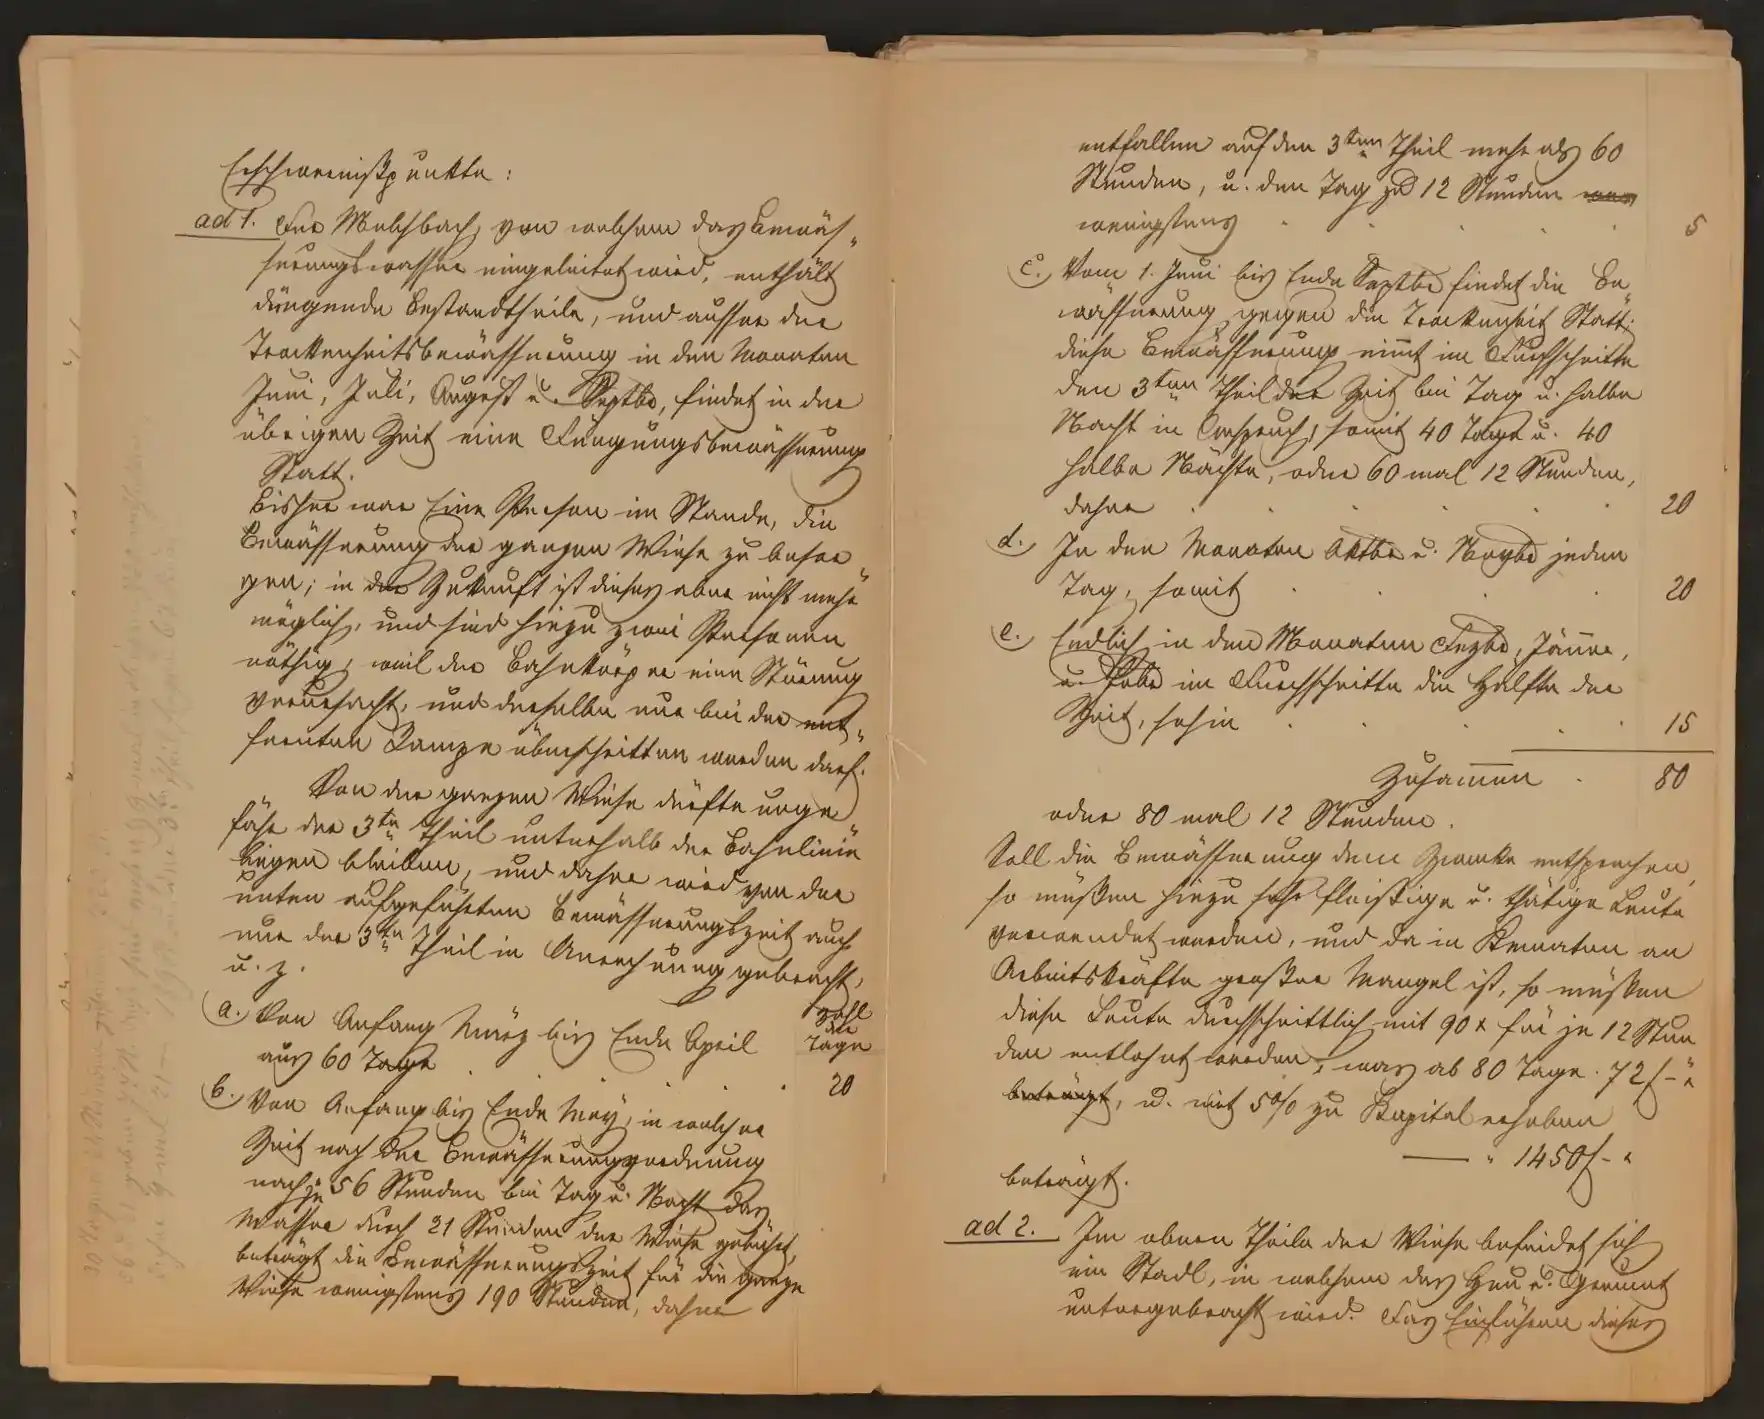 Erschwernißpunkte:
ad 1. Der Melchbach, von welchem das Bewäs„
serungswasser eingeleitet wird, enthält
düngende Bestandtheile, und ausser der
Trockenheitsbewässerung in den Monaten
Juni, Juli, August u. Septbr, findet in der
übrigen Zeit eine Düngungsbewässerung
Statt.
Bisher war Eine Person im Stande, die
Bewässerung der ganzen Wiese zu besor„
gen; in der Zukunft ist dieses aber nicht mehr
möglich, und sind hiezu zwei Personen
nöthig, weil der Bahnkörper eine Störung
verursacht, und derselbe nur bei der ent„
fernten Rampe überschritten werden darf.
Von der ganzen Wiese dürfte unge„
fähr der 3te Theil unterhalb der Bahnlinie
liegen bleiben, und daher wird von der
unten aufgeführten Bewässerungszeit auch
nur der 3te Theil in Anrechnung gebracht,
u. z.
Zahl
der
Tage
a. Von Anfang März bis Ende April
aus 60 Tage . . . 20
b. Von Anfang bis Ende May, in welcher
Zeit nach der Bewässerungsordnung
nach je 56 Stunden bei Tag u. Nacht das
Wasser durch 21 Stunden der Wiese gebührt,
beträgt die Bewässerungszeit für die ganze
Wiese wenigstens 190 Stunden, daher
entfallen auf den 3ten Theil mehr als 60
Stunden, u. den Tag zu 12 Stunden
wenigstens . . . . . 5
c. Vom 1. Juni bis Ende Septbr findet die Be„
wässerung gegen die Trockenheit Statt;
diese Bewässerung nimt im Durchschnitte
den 3ten Theil der Zeit bei Tag u. halbe
Nacht in Anspruch, somit 40 Tage u. 40
halbe Nächte, oder 60 mal 12 Stunden,
daher . . . . . 20
d. In den Monaten Oktbr u. Novbr jeden
Tag, somit . . . 20
e. Endlich in den Monaten Dezbr, Jänner,
u. Febr im Durchschnitte die Hälfte der
Zeit, sohin . . . . . 15
Zusammen . 80
oder 80 mal 12 Stunden.
Soll die Bewässerung dem Zwecke entsprechen,
so müßen hiezu sehr fleißige u. thätige Leute
verwendet werden, und da in Kematen an
Arbeitskräfte großer Mangel ist, so müßen
diese Leute durchschnittlich mit 90 x für je 12 Stun
den entlohnt werden, was ab 80 Tage . 72 f – „
beträgt, u. mit 5% zu Kapital erhoben
„ 1450 f – „
beträgt.
ad 2. Im obern Theile der Wiese befindet sich
ein Stadl, in welchem das Heu u. Grumet
untergebracht wird. Das Einführen dieses